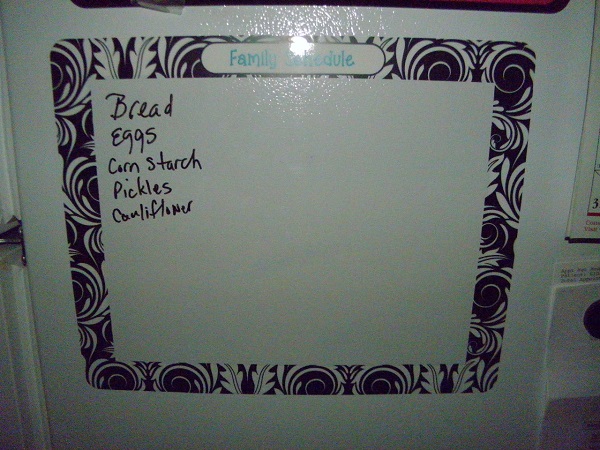 Family Schedule
Bread
Eggs
Corn Starch
Pickles
Cauliflower
3